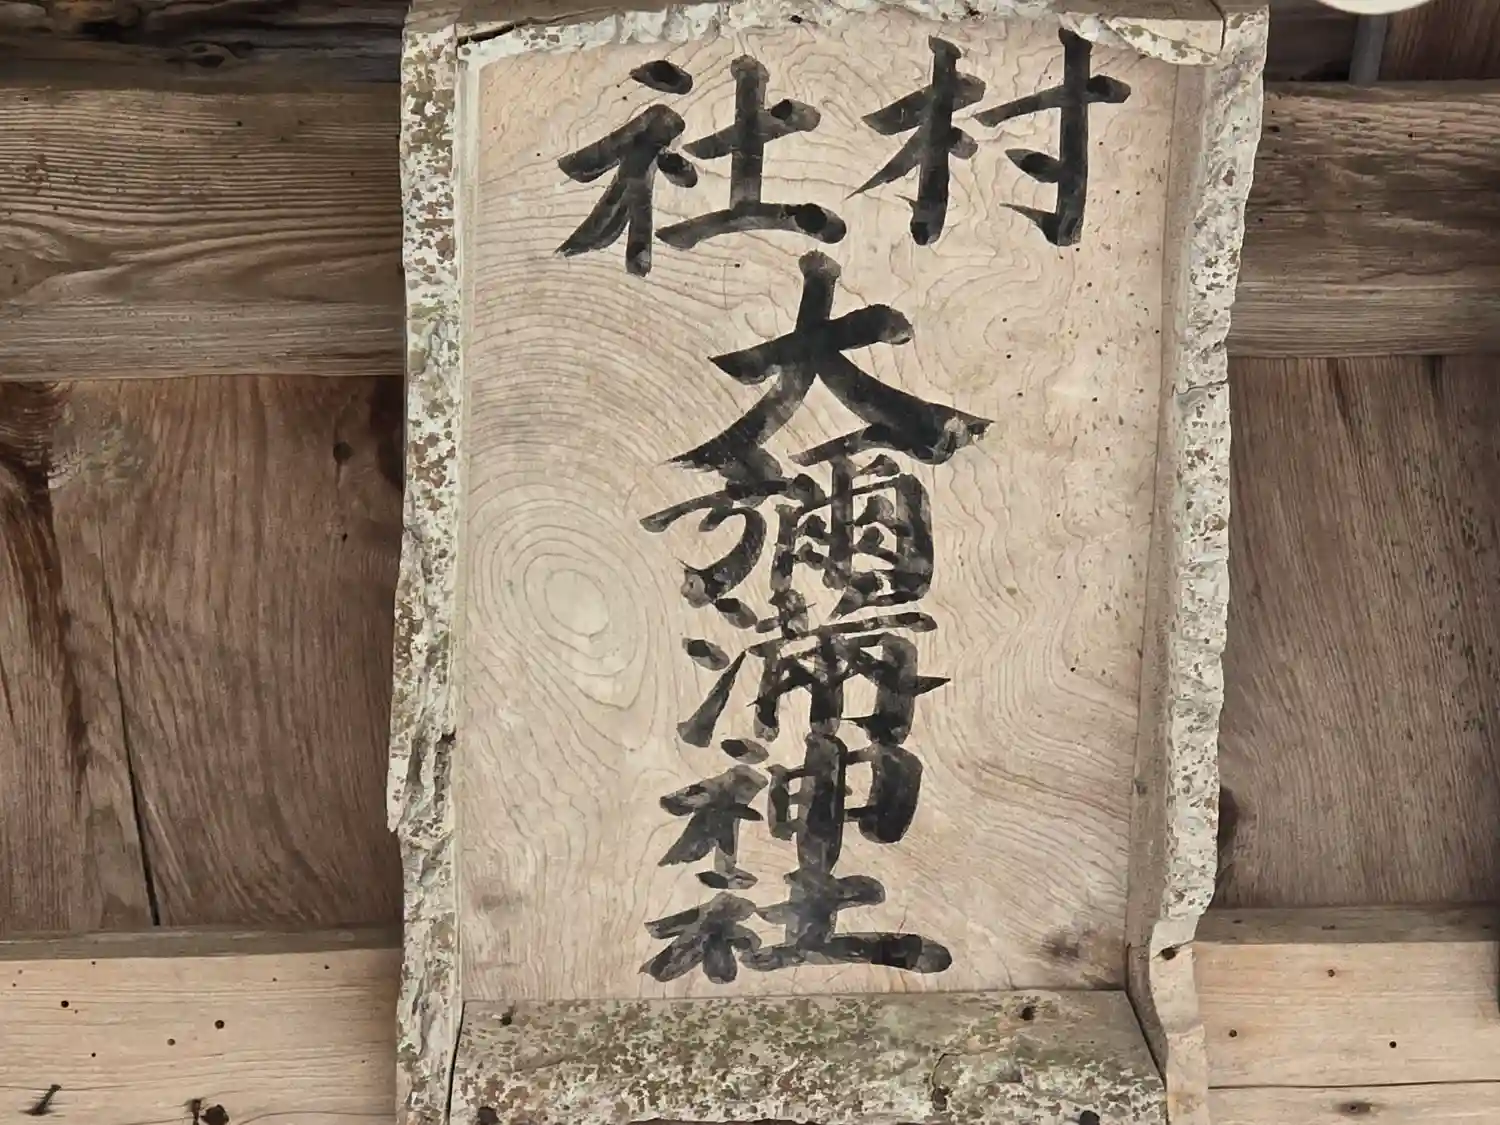 村社
大彌満神社